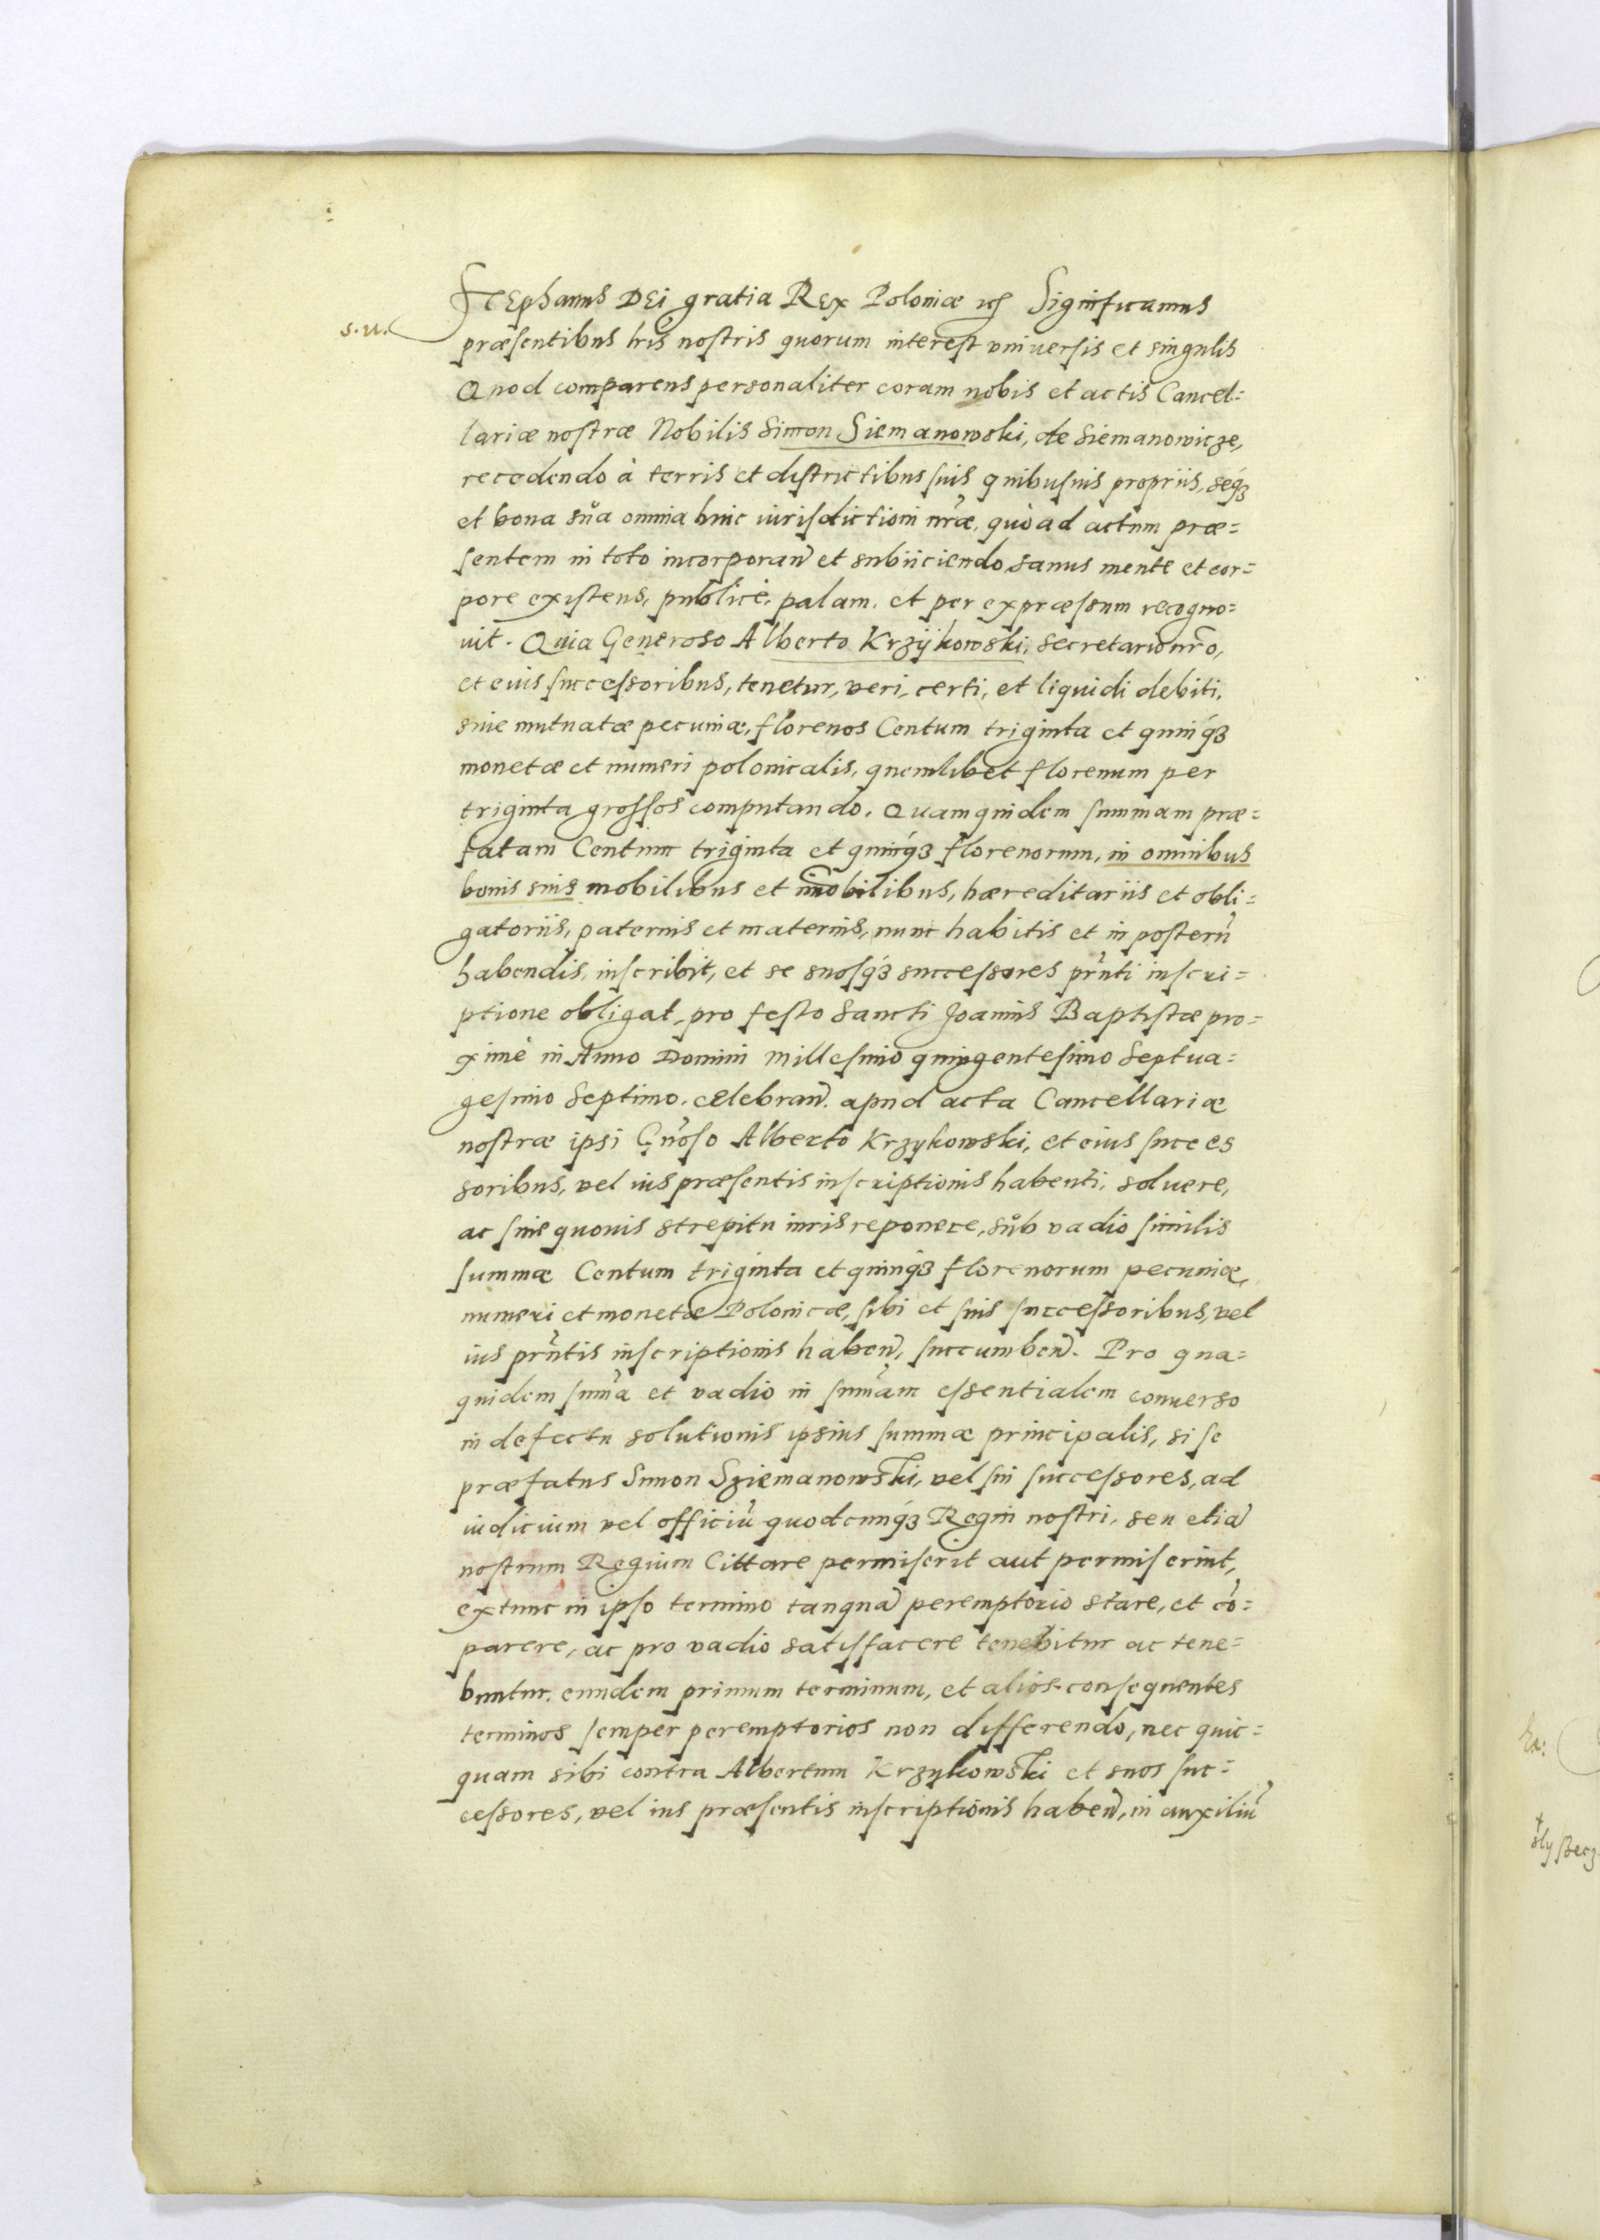 Stephanus Dei gratia Rex Poloniæ etc Significamus
s.u.
præsentibus lris nostris quorum interest vniuersis et singulis
Quod comparens personaliter coram nobis et actis Cancel=
lariæ nostræ Nobilis Simon Siemanowski, de Siemanowicze,
recedendo à terris et districtibus suis quibusuis propriis, seq́ꝫ
et bona sua omnia huic iurisdictioni nr̃æ, quò ad actum præ=
sentem in toto incorporan̄ et subiiciendo, sanus mente et cor=
pore existens, publicè, palam, et per expræssum recogno=
uit. Quia Generoso Alberto Krzÿkowski, secretario nr̃o,
et eius successoribus, tenetur, veri, certi, et liquidi debiti,
siue mutuatæ pecuniæ, florenos Centum triginta et quinq́ꝫ
monetæ et numeri polonicalis, quemlibet florenum per
triginta grossos computando. Quamquidem summam præ=
fatam Centum triginta et quinq́ꝫ florenorum, in omnibus
bonis suis mobilibus et im̄obilibus, hæreditariis et obli=
gatoriis, paternis et maternis, nunc habitis et in posterū
habendis, inscribit, et se suosq́ꝫ successores pr̃nti inscri=
ptione obligat, pro festo Sancti Joannis Baptistæ pro=
ximè in Anno Domini Millesimo quingentesimo Septua=
gesimo Septimo. celebran̄. apud acta Cancellariæ
nostræ ipsi Gn̄oso Alberto Krzykowski, et eius succes
soribus, vel ius præsentis inscriptionis habenti, soluere,
ac sine quouis strepitu iuris reponere, sub vadio similis
summæ Centum triginta et quinq́ꝫ florenorum pecuniæ,
numeri et monetæ Polonicæ, sibi et suis successoribus, vel
ius pr̃ntis inscriptionis haben̄, succumben̄. Pro qua=
quidem sum̄a et vadio in sum̄am essentialem conuerso
in defectu solutionis ipsius summæ principalis, si se
præfatus Simon Sziemanowski, vel sui successores, ad
iudicium vel officiū quodcunq́ꝫ Regni nostri, seu etiā
nostrum Regium Cittare permiserit aut permiserint,
extunc in ipso termino tanquā peremptorio stare, et cō=
parere, ac pro vadio satisfacere tenebitur ac tene=
buntur, eundem primum terminum, et alios consequentes
terminos semper peremptorios non differendo, nec quic=
quam sibi contra Albertum Krzykowski et suos suc=
cessores, vel ius præsentis inscriptionis haben̄, in auxiliū